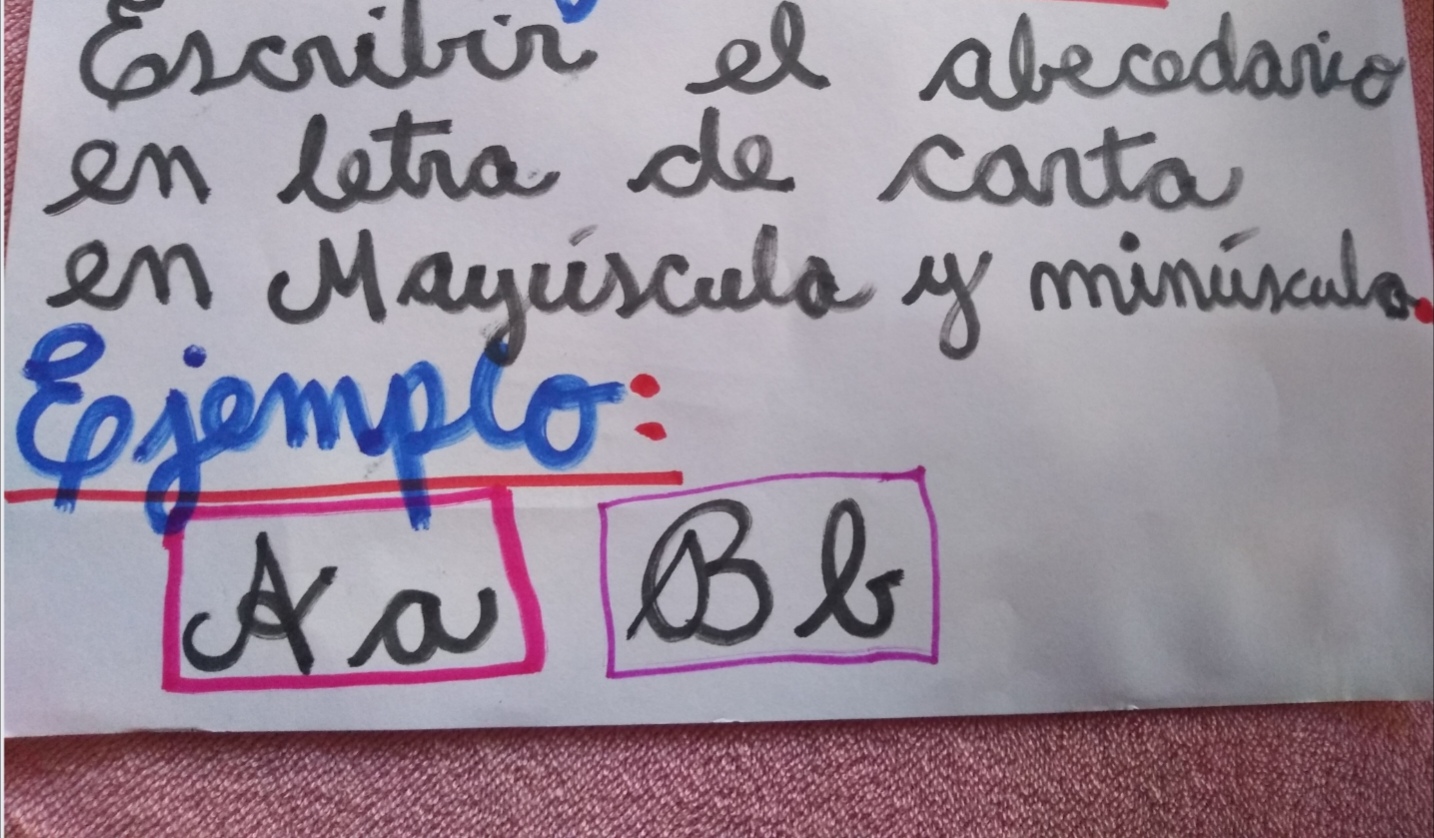 Escribir el abecedario
en letra de carta
en Mayúscula y minúscula.
Ejemplo:
A a B b